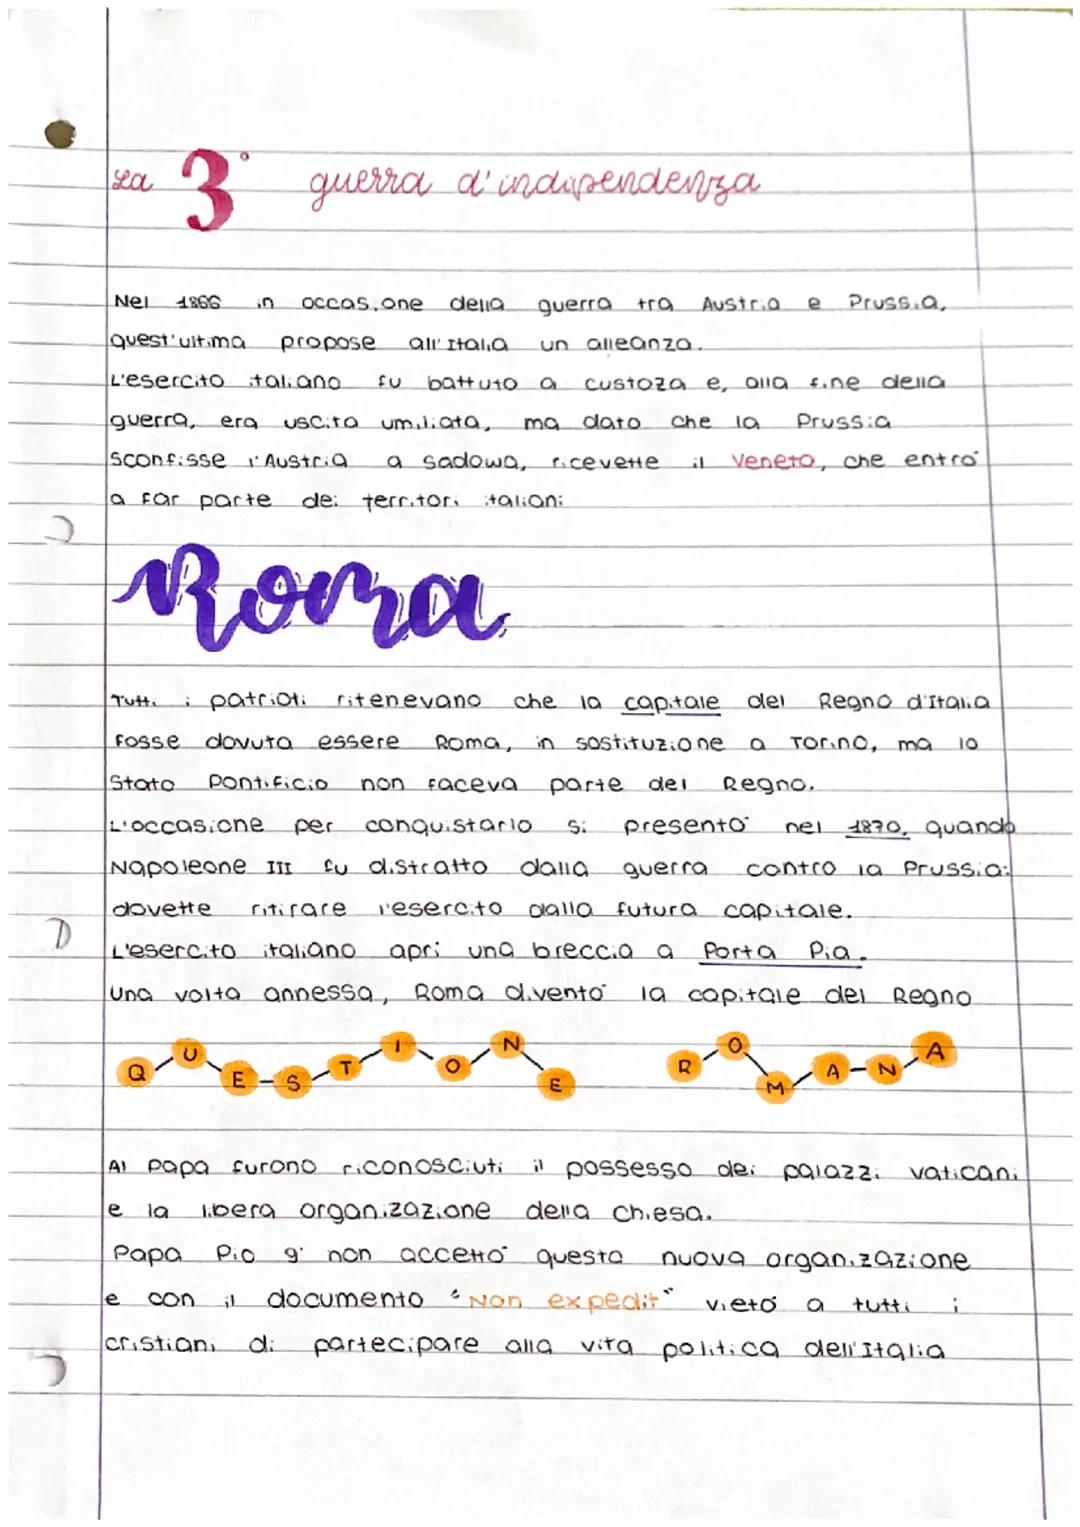 La 3° guerra d'indipendenza
Nel 1866 in occasione della guerra tra Austria e Prussia,
quest'ultima propose all'Italia un alleanza.
L'esercito italiano fu battuto a custoza e, alla fine della
guerra, era uscita umiliata, ma dato che la Prussia
sconfisse l'Austria a sadowa, ricevette il Veneto, che entrò
a far parte dei territori italiani
Roma
Tutti i patrioti ritenevano che la capitale del Regno d'Italia
fosse dovuta essere Roma, in sostituzione a Torino, ma lo
Stato Pontificio non faceva parte del Regno.
L'occasione per conquistarlo si presentò nel 1870, quando
Napoleone III fu distratto dalla guerra contro la Prussia:
dovette ritirare l'esercito dalla futura capitale.
L'esercito italiano aprì una breccia a Porta Pia.
Una volta annessa, Roma diventò la capitale del Regno
QUESTIONE ROMANA
Al Papa furono riconosciuti il possesso dei palazzi vaticani
e la libera organizazione della chiesa.
Papa Pio 9° non accettò questa nuova organizzazione
e con il documento "Non expedit" vietò a tutti i
cristiani di partecipare alla vita politica dell'Italia